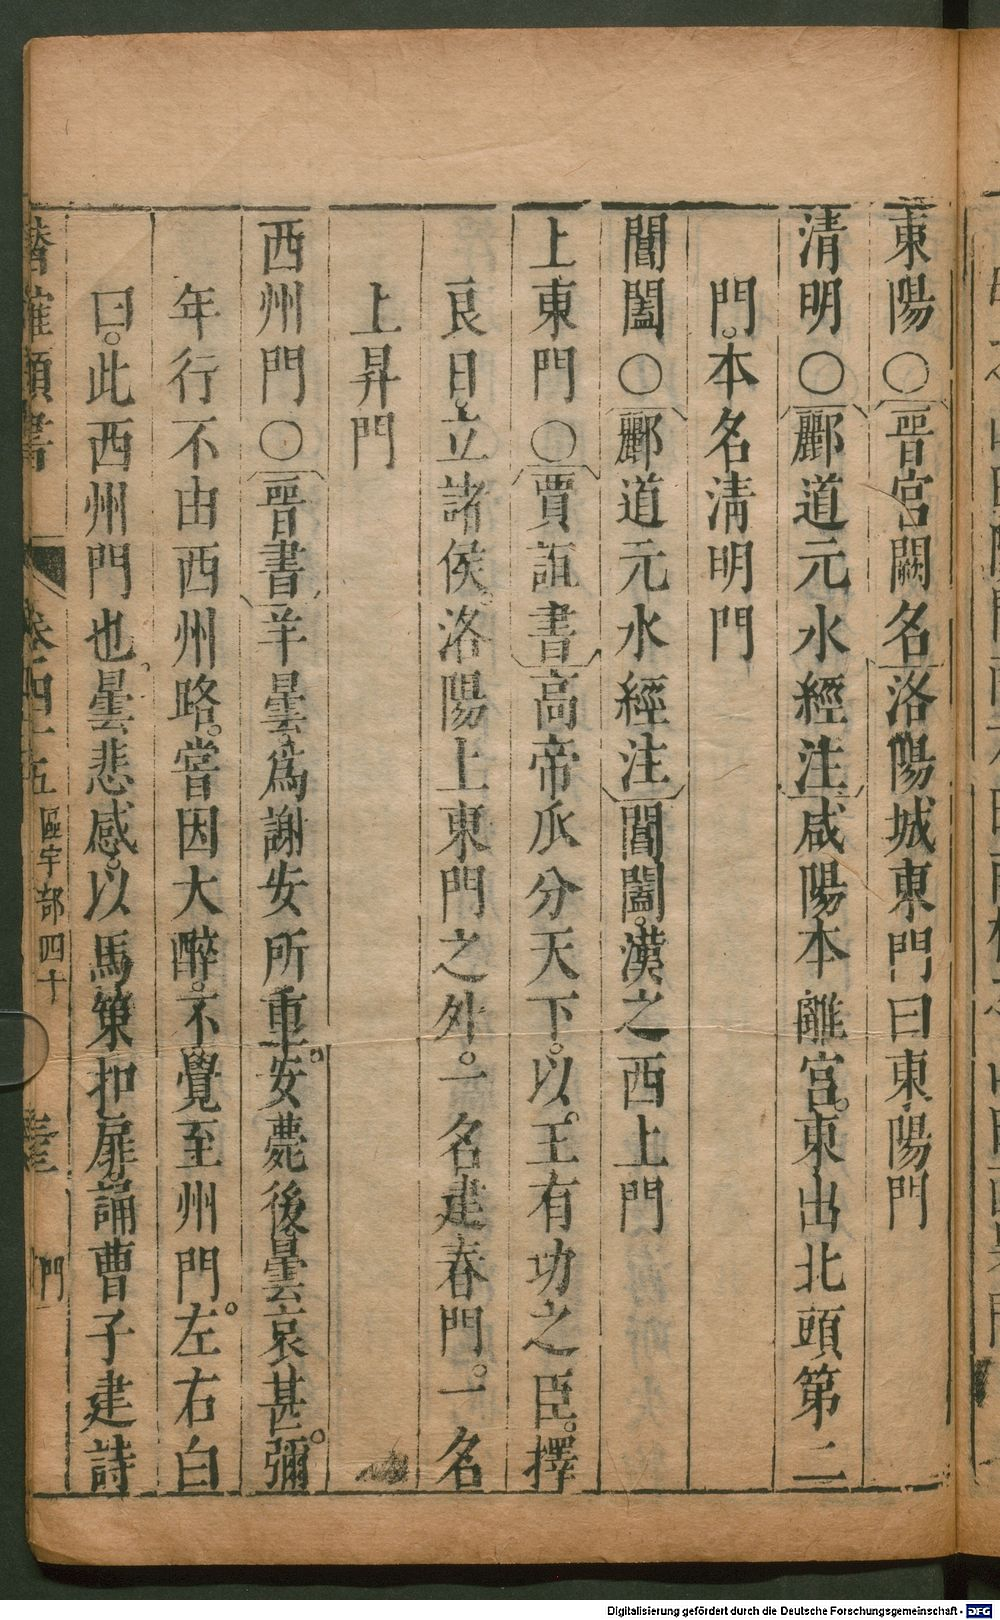 東陽○晉宮闕名洛陽城東門曰東陽門
清明○酈道元水經注咸陽本離宮。東出北頭第二
門。本名淸明門
閶闔○酈道元水經注閶闔。漢之西上門
上東門○賈誼書高帝瓜分天下。以王有功之臣。擇
良日。立諸侯。洛陽上東門之外。一名建春門。一名
上昇門
西州門○晉書羊曇爲謝安所重。安薨後。曇哀甚。彌
年行不由西州路。嘗因大醉。不覺至州門。左右白
曰。此西州門也。曇悲感。以馬策扣扉。誦曹子建詩
潛確類書 卷四十五 區宇部四十 門
Digitalisierung gefördert durch die Deutsche Forschungsgemeinschaft - DFG